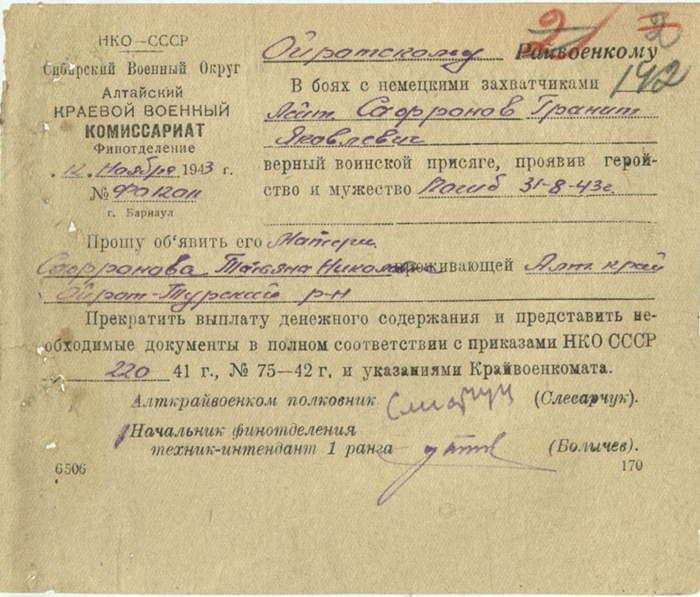 НКО—СССР
Сибирский Военный Округ
Алтайский
КРАЕВОЙ ВОЕННЫЙ
КОМИССАРИАТ
Финотделение
12 Ноября 1943 г.
№
г. Барнаул
2
142
Ойратскому Райвоенкому
В боях с немецкими захватчиками
Лейт. Сафронов Гранит
Яковлевич
верный воинской присяге, проявив герой-
ство и мужество Погиб 31-8-43г.
Прошу об'явить его Матери
Сафронова Татьяна проживающей Алт край
Ойрот-Турский р-н
Прекратить выплату денежного содержания и представить не-
обходимые документы в полном соответствии с приказами НКО СССР
220 41 г., № 75—42 г, и указаниями Крайвоенкомата.
Алткрайвоенком полковник (Слесарчук).
Начальник финотделения
техник-интендант 1 ранга (Болычев).
6506 170